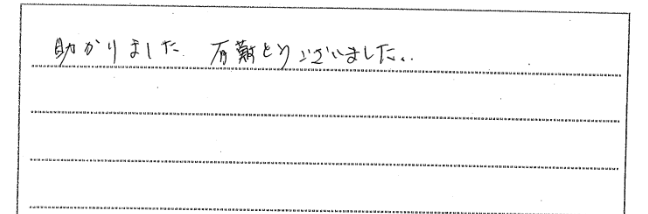 助かりました 有難とうございました。